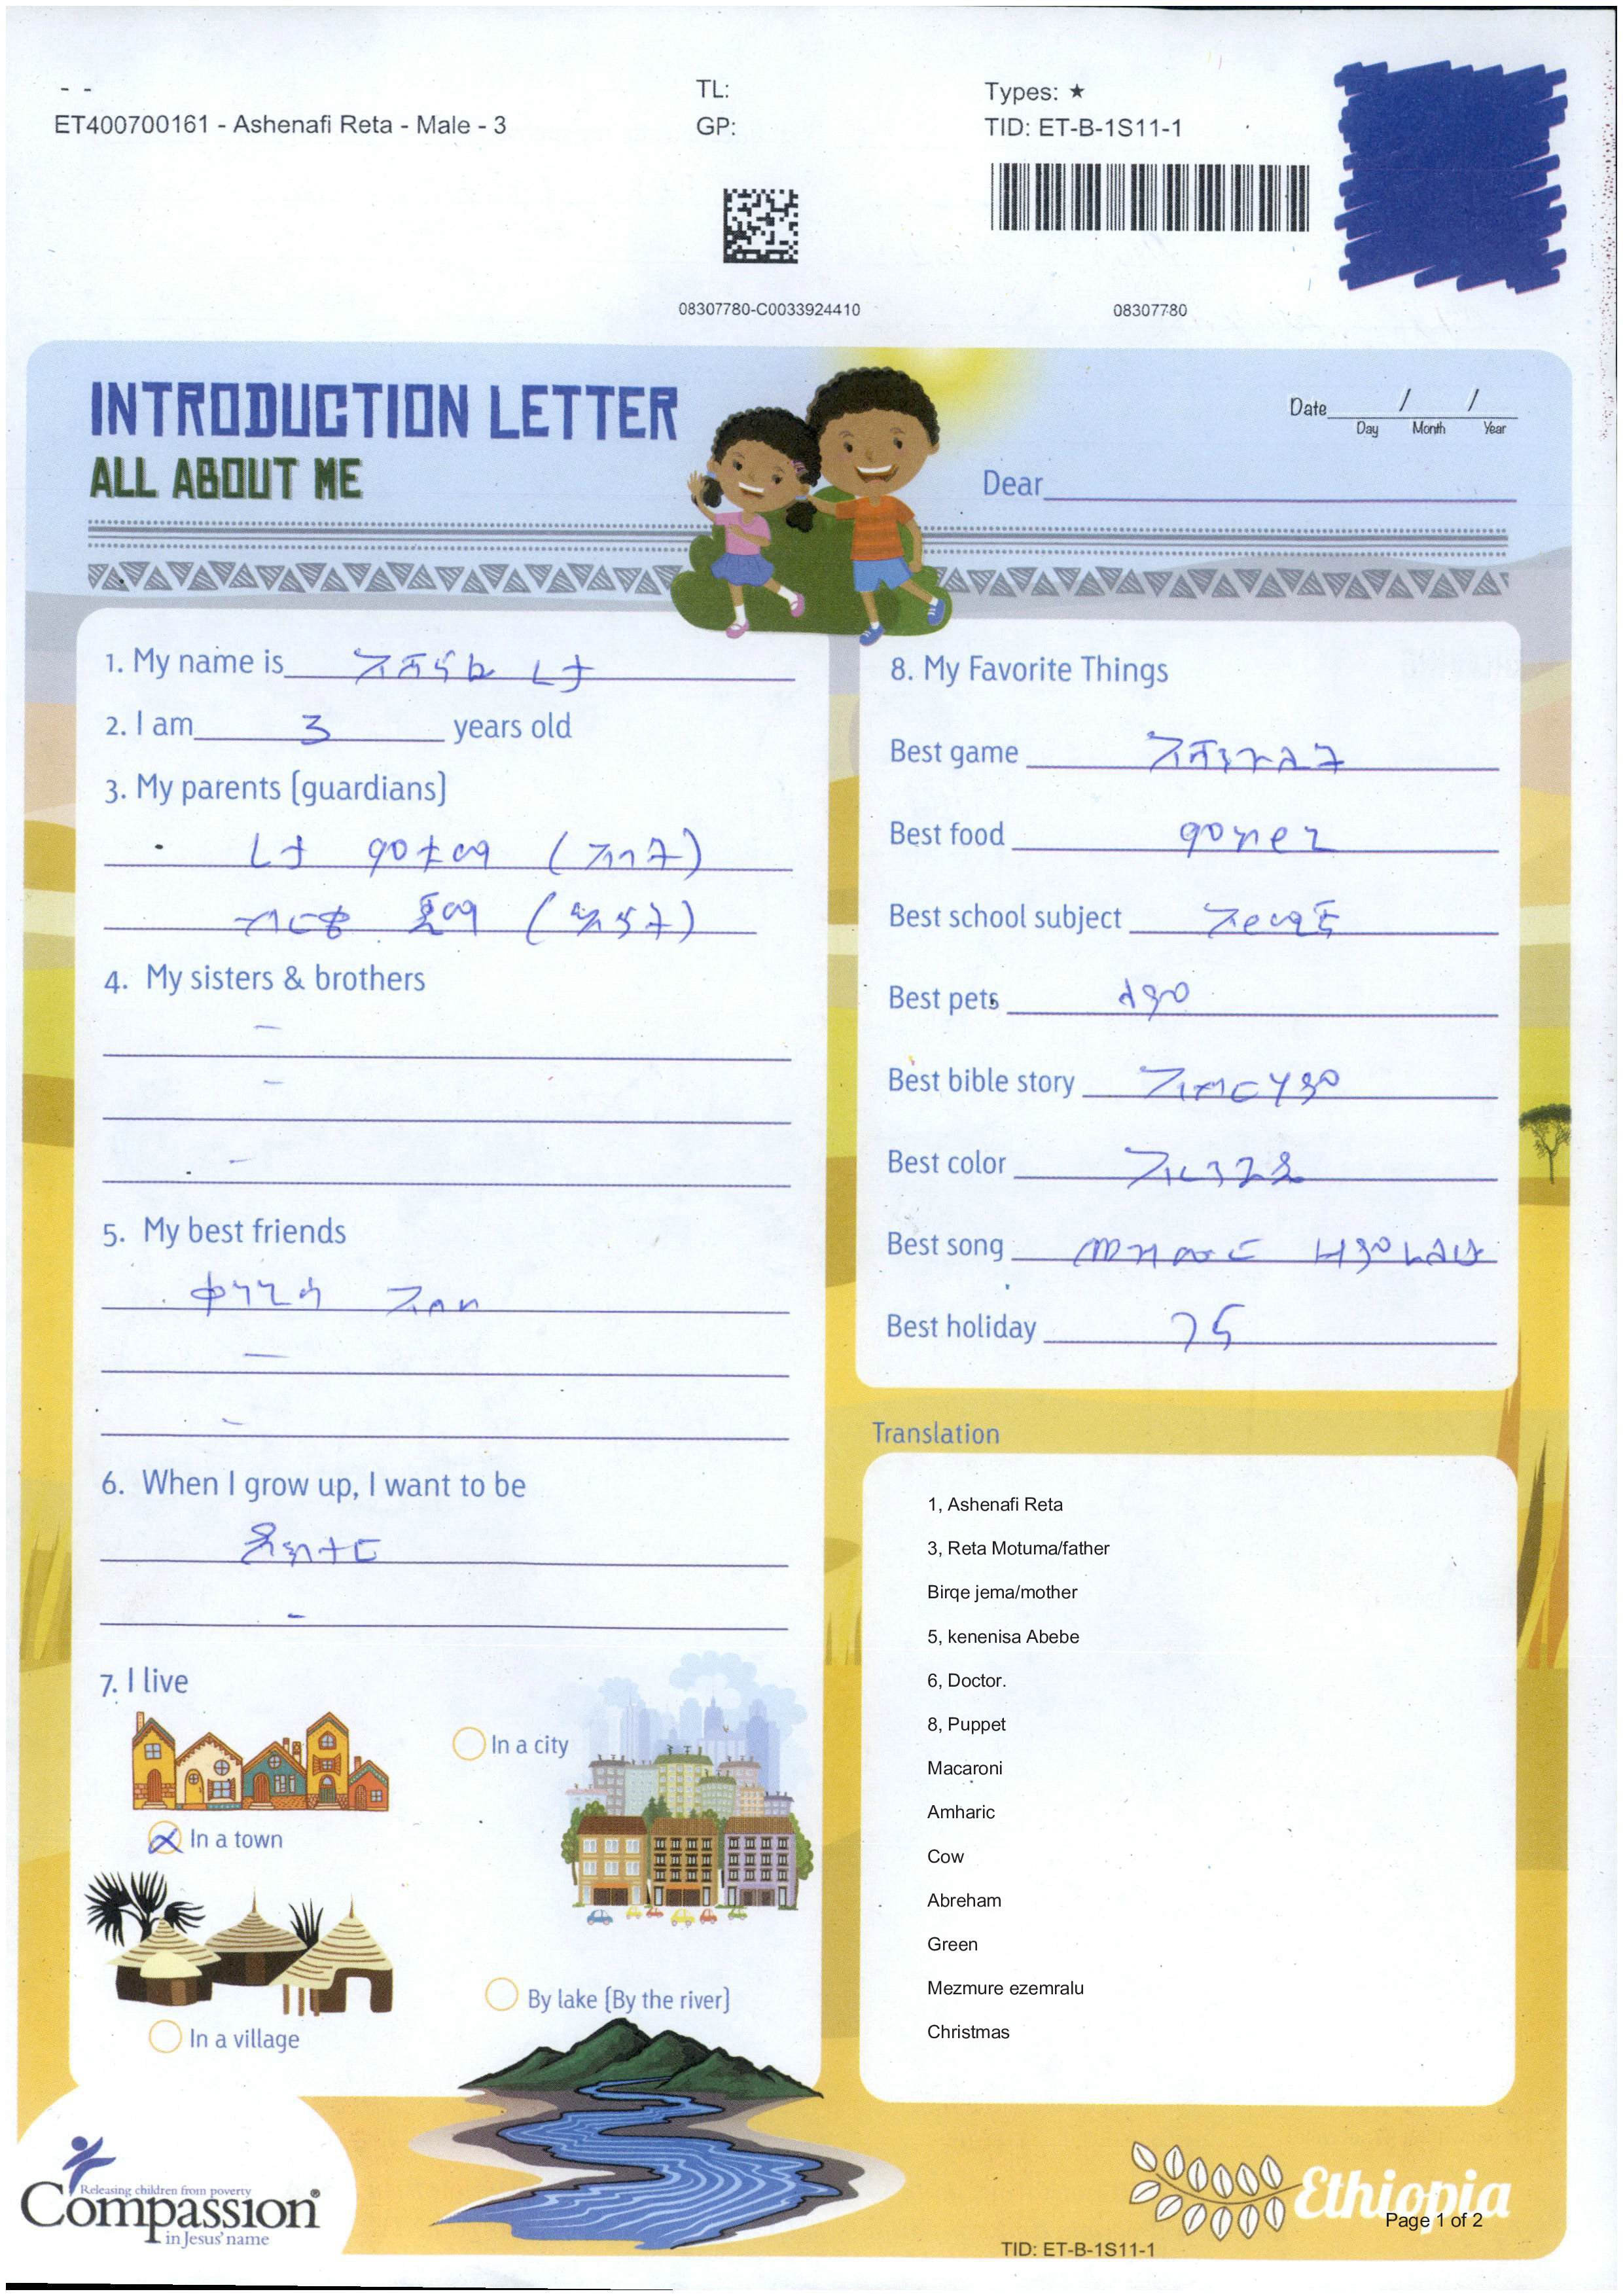 - -
ET400700161 - Ashenafi Reta - Male - 3
TL:
GP:
Types: ★
TID: ET-B-1S11-1
08307780-C0033924410
08307780
INTRODUCTION LETTER
ALL ABOUT ME
Date / /
Day Month Year
Dear
1. My name is አሸናፊ ረታ
2. I am 3 years old
3. My parents (guardians)
ረታ ሞቱማ (አባት)
ብርቄ ጀማ (እናት)
4. My sisters & brothers
-
-
-
5. My best friends
ቀነኒሳ አበበ
-
-
6. When I grow up, I want to be
ዶክተር
-
7. I live
In a city
In a town
By lake (By the river)
In a village
8. My Favorite Things
Best game አሻንጉሊት
Best food
Best school subject አማርኛ
Best pets ላም
Best bible story አብርሃም
Best color አረንጓዴ
Best song መዝሙር እዘምራለሁ
Best holiday ገና
Translation
1, Ashenafi Reta
3, Reta Motuma/father
Birqe jema/mother
5, kenenisa Abebe
6, Doctor.
8, Puppet
Macaroni
Amharic
Cow
Abreham
Green
Mezmure ezemralu
Christmas
Compassion®
Releasing children from poverty
in Jesus' name
Ethiopia
Page 1 of 2
TID: ET-B-1S11-1